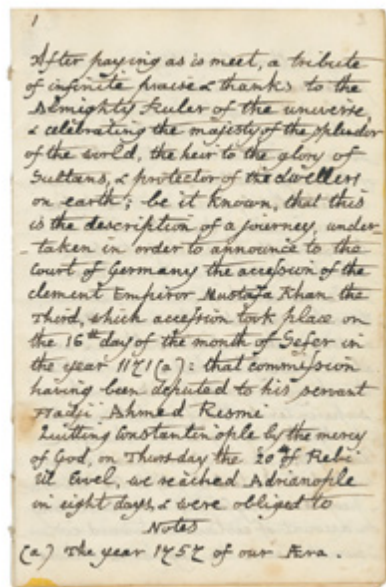 1
After paying as is meet, a tribute
of infinite praise & thanks to the
Almighty Ruler of the universe
& celebrating the majesty of the splendor
of the world, the heir to the glory of
Sultans, & protector of the dwellers
on earth; be it known, that this
is the description of a journey, under-
-taken in order to announce to the
Court of Germany the accession of the
clement Emperor Mustafa Khan the
Third, which accession took place on
the 16th day of the month of Sefer in
the year 1171 (a): that commission
having been deputed to his servant
Hadji Ahmed Resme
Quitting Constantinople by the mercy
of God, on Thursday the 20th of Rebi
Ul Evel, we reached Adrianople
in eight days, & were obliged to
Notes
(a) The year 1757 of our Æra.